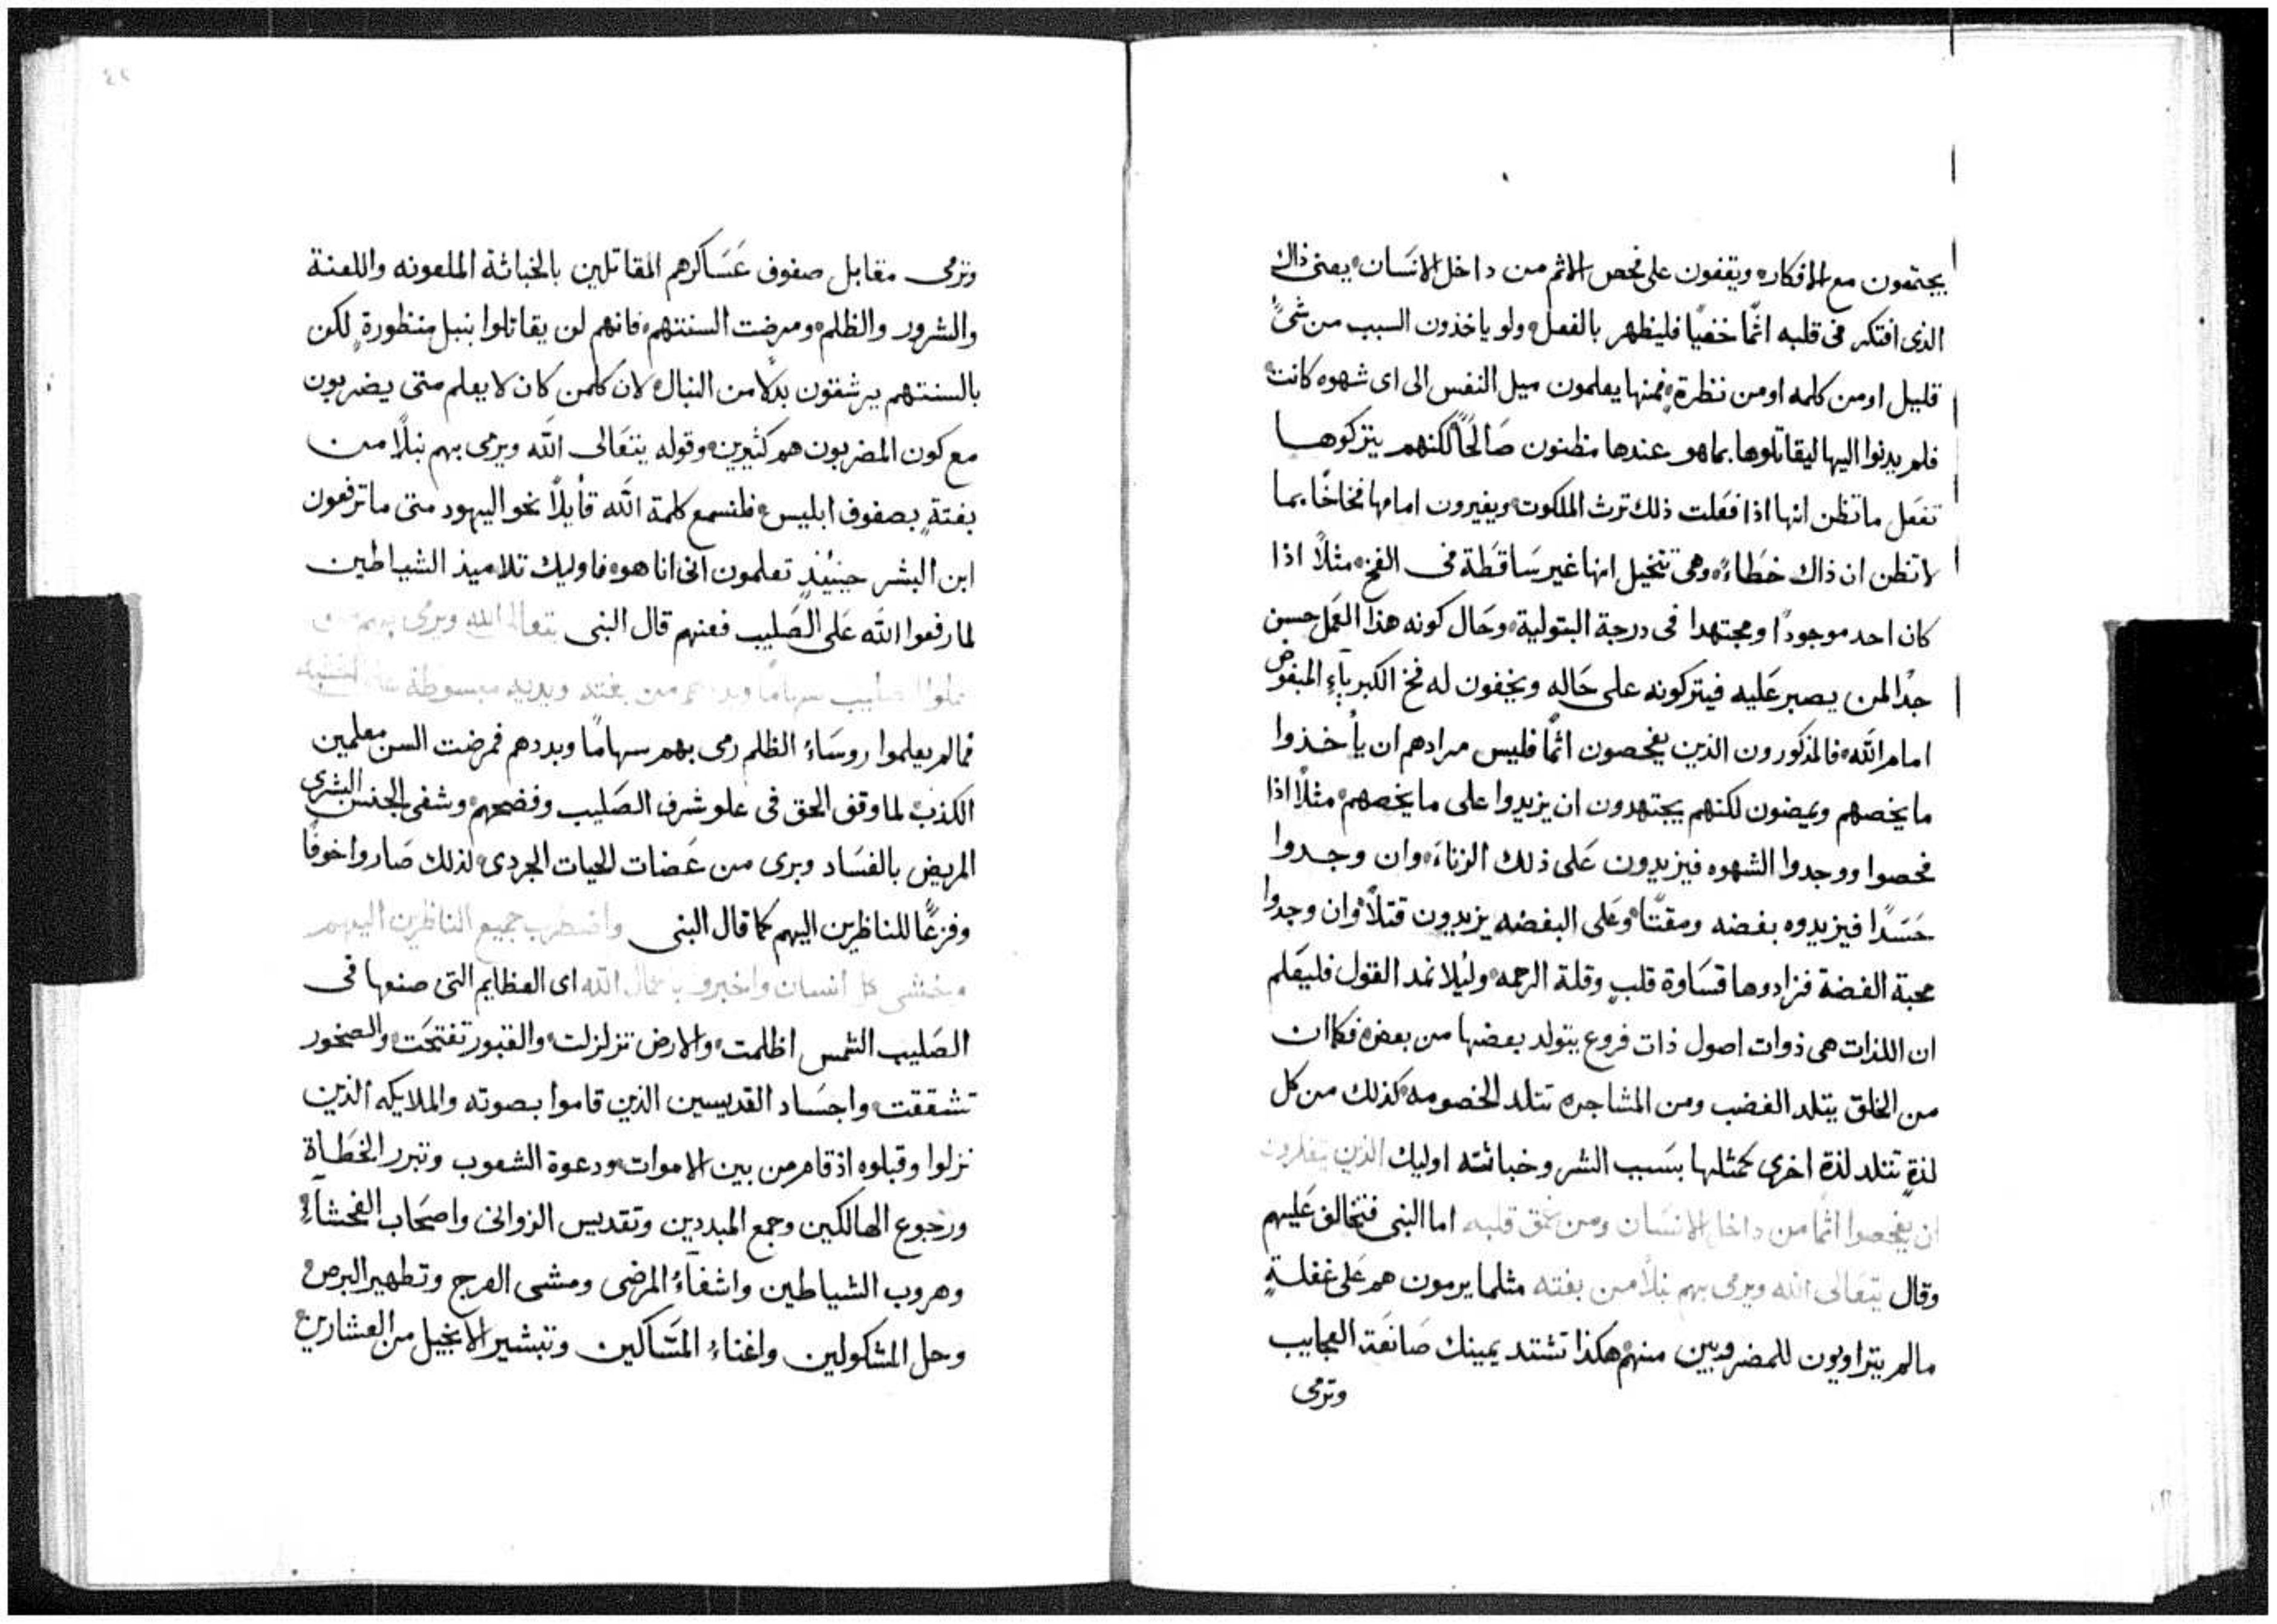 يجتمعون مع الافكار، ويقفون على فحص الاثم من داخل الانسان، يعنى ذاك
الذى افتكر فى قلبه اثمًا خفيًا فليظهر بالفعل، ولو ياخذون السبب من شىً
قليل اومن كلمه اومن نظرة، فمنها يعلمون ميل النفس الى اى شهوه كانت،
فلم يدنوا اليها ليقاتلوها بما هو عندها مظنون صَالحًا لكنهم يتركوها
تفعَل ما تظن انها اذا فعَلت ذلك ترث الملكوت، ويغيرون امامها فخاخًا بما
لا تظن ان ذاك خطَاءً، وهى تتخيل انها غير سَاقطَة فى الفخ، مثلاً اذا
كان احد موجودًا ومجتهدا فى درجة البتولية، وحَال كونه هذا العَمل حسن
جدًا لمن يصبر عَليه فيتركونه على حَاله ويخفون له فخ الكبرياءِ المبغوض
امام الله، فالمذكورون الذين يفحصون اثمًا فليس مرادهم ان يأخذوا
ما يخصهم ويمضون لكنهم يجتهدون ان يزيدوا على ما يخصهم، مثلًا اذا
فحصوا ووجدوا الشهوه فيزيدون عَلى ذلك الزناءَ، وان وجدوا
حَسَدًا فيزيدوه بغضه ومقتًا، وعَلى البغضه يزيدون قتلاً، وان وجدوا
محبة الفضة فزادوها قسَاوة قلبٍ وقلة الرحمه، وليلا نمد القول فليعَلم
ان اللذات هى ذوات اصول ذات فروع يتولد بعضها من بعض، فكما ان
من الخلق يتلد الغضب ومن المشاجره تتلد الخصومه، كذلك من كل
لذةٍ تتلد لذة اخرى كمثلها بسَبب الشر وخباثته اوليك الذين يتفكرون
ان يفحصوا اثمًا من داخل الانسَان ومن عمق قلبه، اما النبى فتخالف عَليهم
وقال يتعَالى الله ويرمى بهم نبلًا من بغته مثلما يرمون هم عَلى غفلةٍ
مالم يتراويون للمضروبين منهم، هكذا تشتد يمينك صَانعَة العجايب
وترمى
وترمى مقابل صفوف عَسَاكرهم المقاتلين بالخباثة الملعونه واللعنة
والشرور والظلم، ومرضت السنتهم، فانهم لن يقاتلوا بنبل منظورةٍ لكن
بالسنتهم يرشقون بدلًا من النبال، لان كلمن كان لا يعلم متى يضربون
مع كون المضربون هم كثيرين، وقوله يتعَالى الله ويرمى بهم نبلًا من
بغتةٍ بصفوف ابليس، فلنسمع كلمة الله قأيلاً نحو اليهود متى ما ترفعون
ابن البشر حينيذٍ تعلمون انى انا هو، فاوليك تلاميذ الشياطين
لما رفعوا الله عَلى الصَليب فعنهم قال النبى يتعالا الله ويرمى بهم
فمالم يعلموا روسَاءُ الظلم رمى بهم سهامًا وبددهم فمرضت السن معلمين
الكذب، لما وقف الحق فى علو شرف الصَليب وفضحهم، وشفى الجنس البشرى
المريض بالفسَاد وبرى من عَضات الحيات الجردى، لذلك صَاروا خوفًا
وفزعًا للناظرين اليهم كما قال النبى واضطرب جميع الناظرين اليهم
وخشى كل انسان واخبروا باعمال الله اى العظايم التى صنعها فى
الصَليب الشمس اظلمت، والارض تزلزلت، والقبور تفتحَت، والصخور
تشققت، واجسَاد القديسين الذين قاموا بصوته والملايكه الذين
نزلوا وقبلوه اذ قام من بين الاموات، ودعوة الشعوب وتبرر الخطَاة
ورجوع الهالكين وجمع المبددين وتقديس الزوانى واصحَاب الفحشآءِ،
وهروب الشياطين واشفاءُ المرضى ومشى العرج وتطهير البرص،
وحل المشكولين واغناءُ المسَاكين وتبشير الانجيل من العشارين،